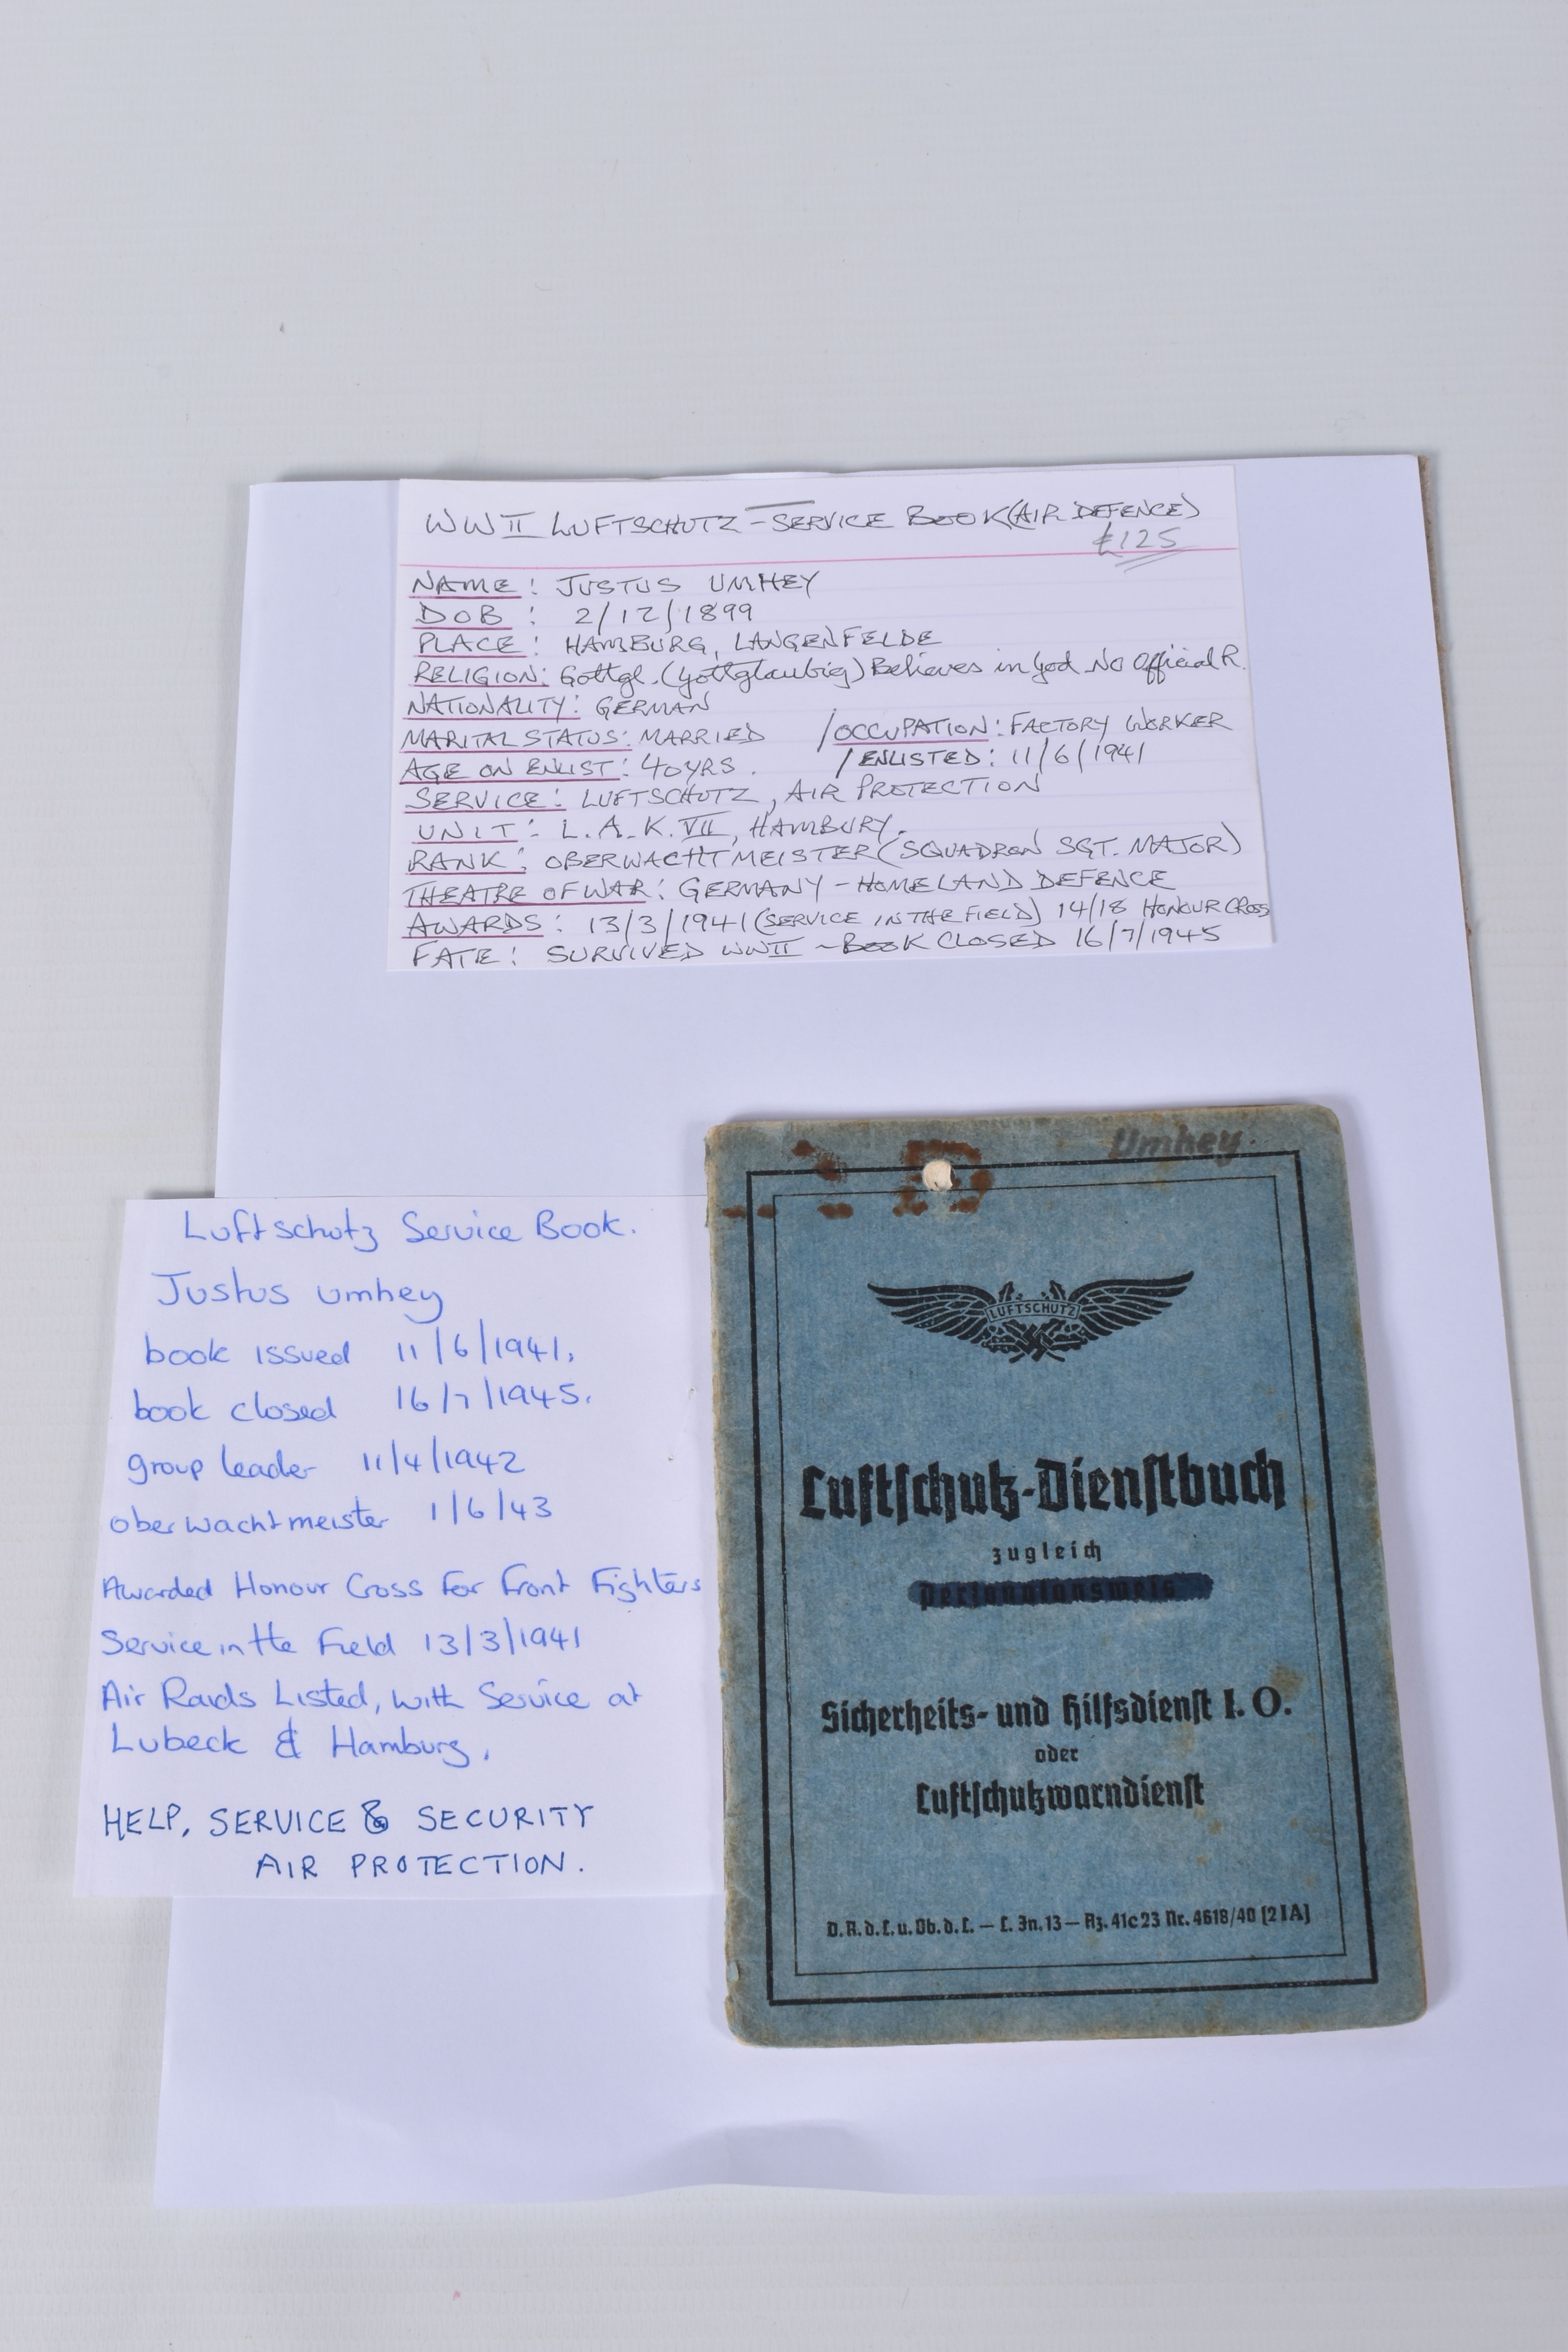 WW II LUFTSCHUTZ - SERVICE BOOK (AIR DEFENCE)
£125
NAME : JUSTUS UMHEY
DOB : 2/12/1899
PLACE : HAMBURG, LANGENFELDE
RELIGION: Gottgl. (gottglaubig) Believes in God No Official R.
NATIONALITY: GERMAN
MARITAL STATUS: MARRIED / OCCUPATION: FACTORY WORKER
AGE ON ENLIST: 40YRS. / ENLISTED: 11/6/1941
SERVICE: LUFTSCHUTZ, AIR PROTECTION
UNIT: L.A.K. VII, HAMBURY.
RANK: OBERWACHTMEISTER (SQUADRON SGT. MAJOR)
THEATRE OF WAR: GERMANY - HOMELAND DEFENCE
AWARDS: 13/3/1941 (SERVICE IN THE FIELD) 14/18 HONOUR CROSS
FATE: SURVIVED WWII - BOOK CLOSED 16/7/1945
Luftschutz Service Book.
Justus Umhey
book issued 11/6/1941,
book closed 16/7/1945.
group leader 11/4/1942
oberwachtmeister 1/6/43
Awarded Honour Cross For Front Fighters
Service in the Field 13/3/1941
Air Raids Listed, with Service at
Lubeck & Hamburg.
HELP, SERVICE & SECURITY
AIR PROTECTION.
Umhey.
LUFTSCHUTZ
Luftschutz-Dienstbuch
zugleich
Personalausweis
Sicherheits- und Hilfsdienst I. O.
oder
Luftschutzwarndienst
D. R. d. L. u. Ob. d. L. — L. In. 13 — Az. 41c 23 Nr. 4618/40 [2 IA]